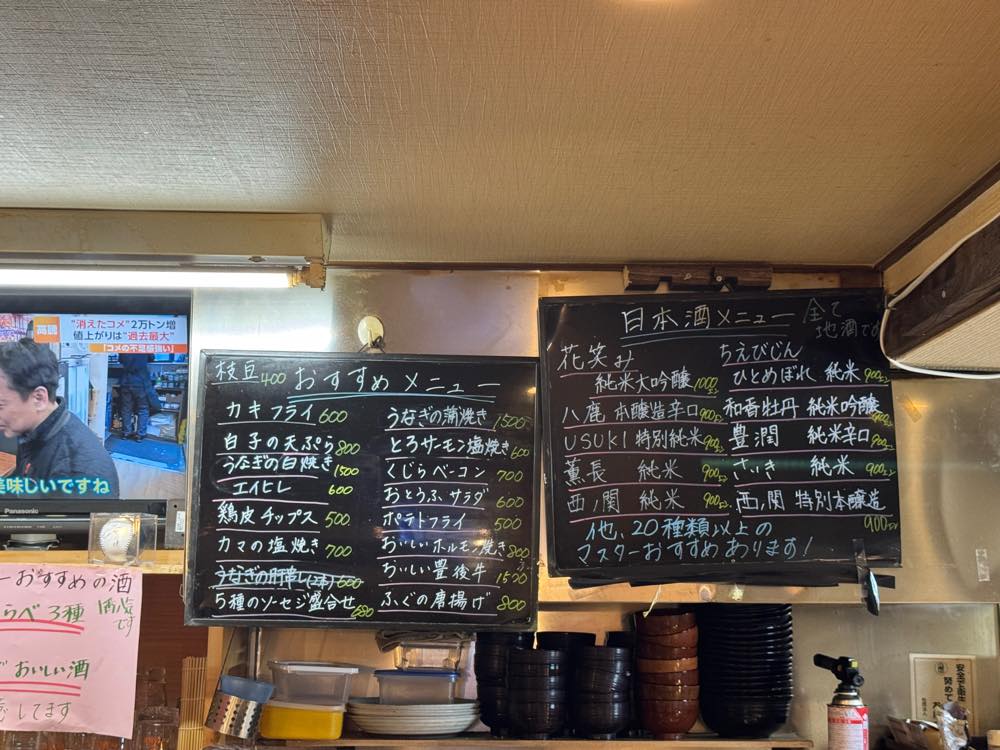 高騰
"消えたコメ"2万トン増
値上がりは"過去最大"
「コメの不足感強い」
美味しいですね
Panasonic
おすすめの酒
らべ 3種
です
おいしい酒
してます
枝豆 400
おすすめメニュー
カキフライ 600
白子の天ぷら 800
うなぎの白焼き 1500
エイヒレ 600
鶏皮チップス 500
カマの塩焼き 700
うなぎの肝串し(2本) 600
5種のソーセジ盛合せ 680
うなぎの蒲焼き 1500
とろサーモン塩焼き 600
くじらベーコン 700
おとうふサラダ 600
ポテトフライ 500
おいしいホルモン焼き 800
おいしい豊後牛 1500
ふぐの唐揚げ 800
日本酒メニュー
全て
地酒です
花笑み
純米大吟醸 1000
八鹿 本醸造辛口 900
USUKI 特別純米 900
薫長 純米 900
西ノ関 純米 900
ちえびじん
ひとめぼれ 純米 900
和香牡丹 純米吟醸 900
豊潤 純米辛口 900
さいき 純米 900
西ノ関 特別本醸造
900
他、20種類以上の
マスターおすすめあります!
安全
努めて